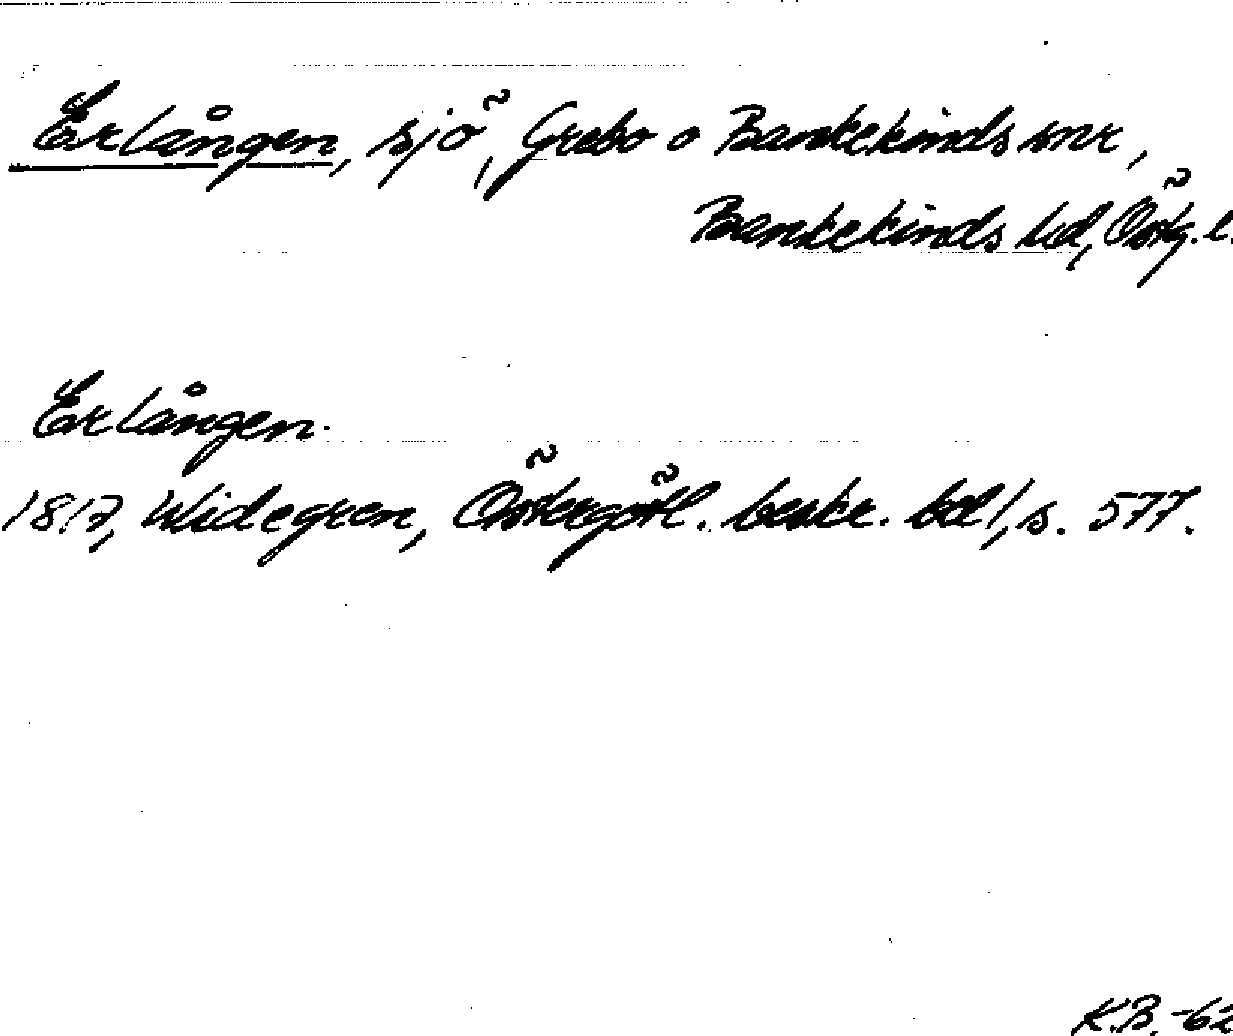 Erlången, sjö, Grebo o Bankekinds snr,
Bankekinds hd, Östg. l.
Erlången.
1817, Widegren, Östergötl. beskr. bd 1, s. 577.
K.B. -62